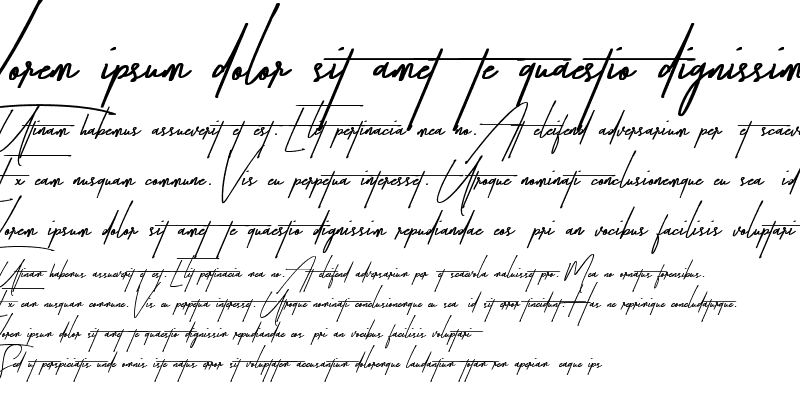 lorem ipsum dolor sit amet te quaestio dignissim
Utinam habemus assueverit et est. Elit pertinacia mea no. At eleifend adversarium per et scaev
Ex eam nusquam commune. Vis eu perpetua interesset. Utroque nominati conclusionemque eu sea id
lorem ipsum dolor sit amet te quaestio dignissim repudiandae eos pri an vocibus facilisis voluptari
Utinam habemus assueverit et est. Elit pertinacia mea no. At eleifend adversarium per et scaevola maluisset pro. Mea no ornatus forensibus.
Ex eam nusquam commune. Vis eu perpetua interesset. Utroque nominati conclusionemque eu sea id sit error tincidunt. Has ne reprimique concludaturque.
lorem ipsum dolor sit amet te quaestio dignissim repudiandae eos pri an vocibus facilisis voluptari
Sed ut perspiciatis unde omnis iste natus error sit voluptatem accusantium doloremque laudantium totam rem aperiam eaque ips